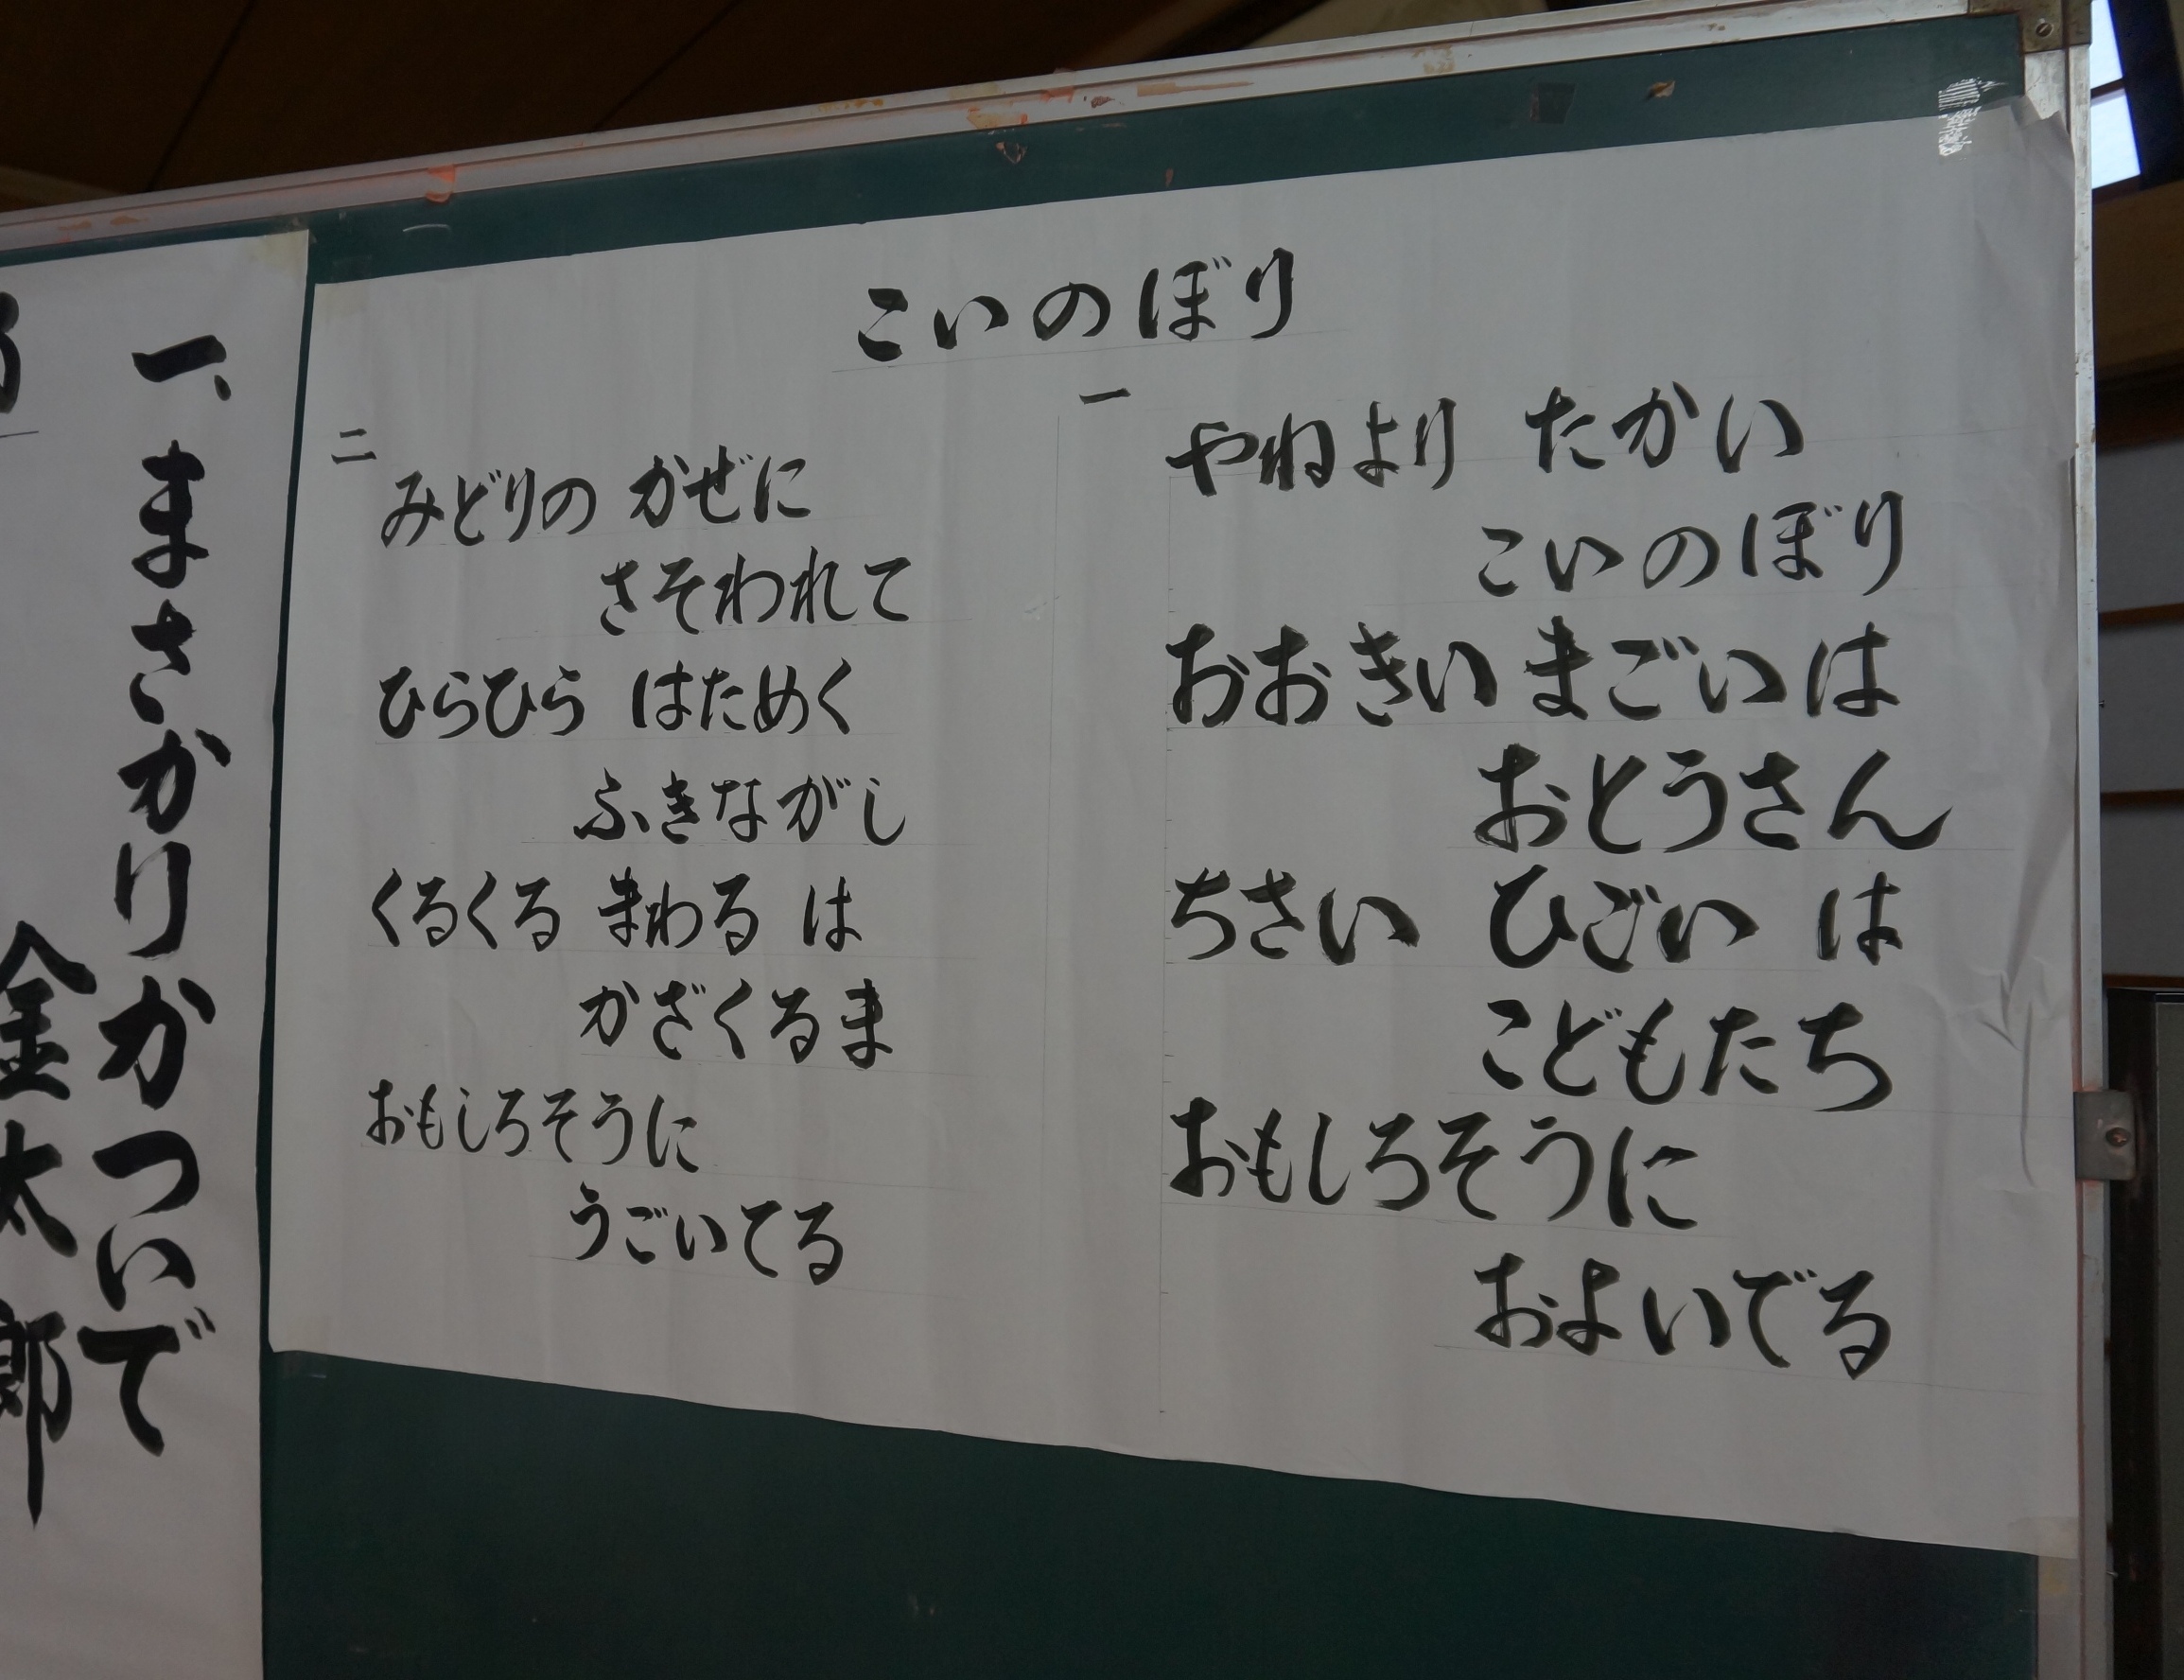 こいのぼり
一
やねより たかい
こいのぼり
おおきい まごいは
おとうさん
ちさい ひごい は
こどもたち
おもしろそうに
およいでる
二
みどりの かぜに
さそわれて
ひらひら はためく
ふきながし
くるくる まわる は
かざくるま
おもしろそうに
うごいてる
一、まさかりかついで
金太郎